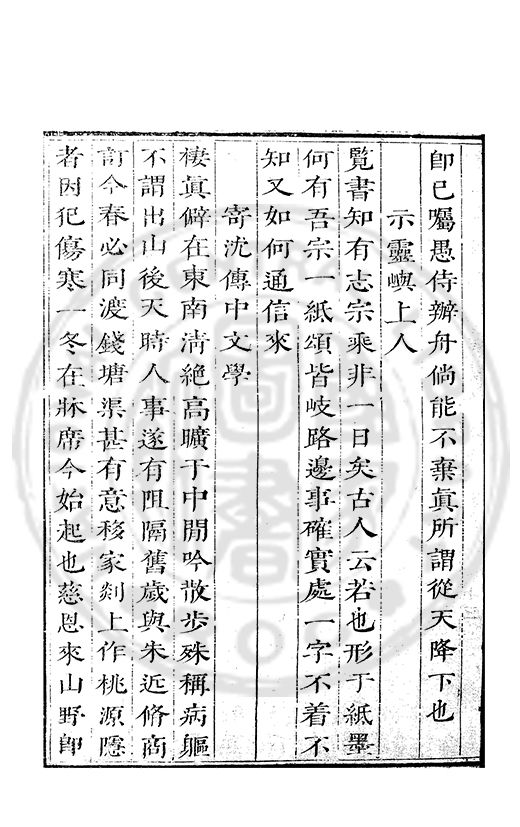 卽已囑愚侍辦舟倘能不棄眞所謂從天降下也
示靈嶼上人
覽書知有志宗乘非一日矣古人云若也形于紙墨
何有吾宗一紙頌皆岐路邊事確實處一字不着不
知又如何通信來
寄沈傳中文學
棲眞僻在東南淸絶高曠于中閒吟散步殊稱病軀
不謂出山後天時人事遂有阻隔舊歲與朱近脩商
訂今春必同渡錢塘渠甚有意移家剡上作桃源隱
者因犯傷寒一冬在牀席今始起也慈恩來山野卽